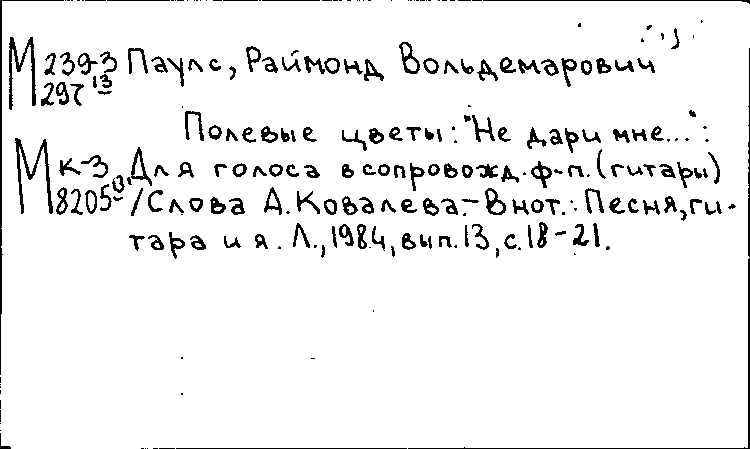 М 239-3 Паулс, Раймонд Вольдемарович
297 13
Полевые цветы: "Не дари мне...":
М К-3 Для голоса в сопровожд. ф-п. (гитары)
8205 /Слова А. Ковалева.- В нот.: Песня, ги-
тара и я. Л., 1984, вып. 13, с. 18-21.